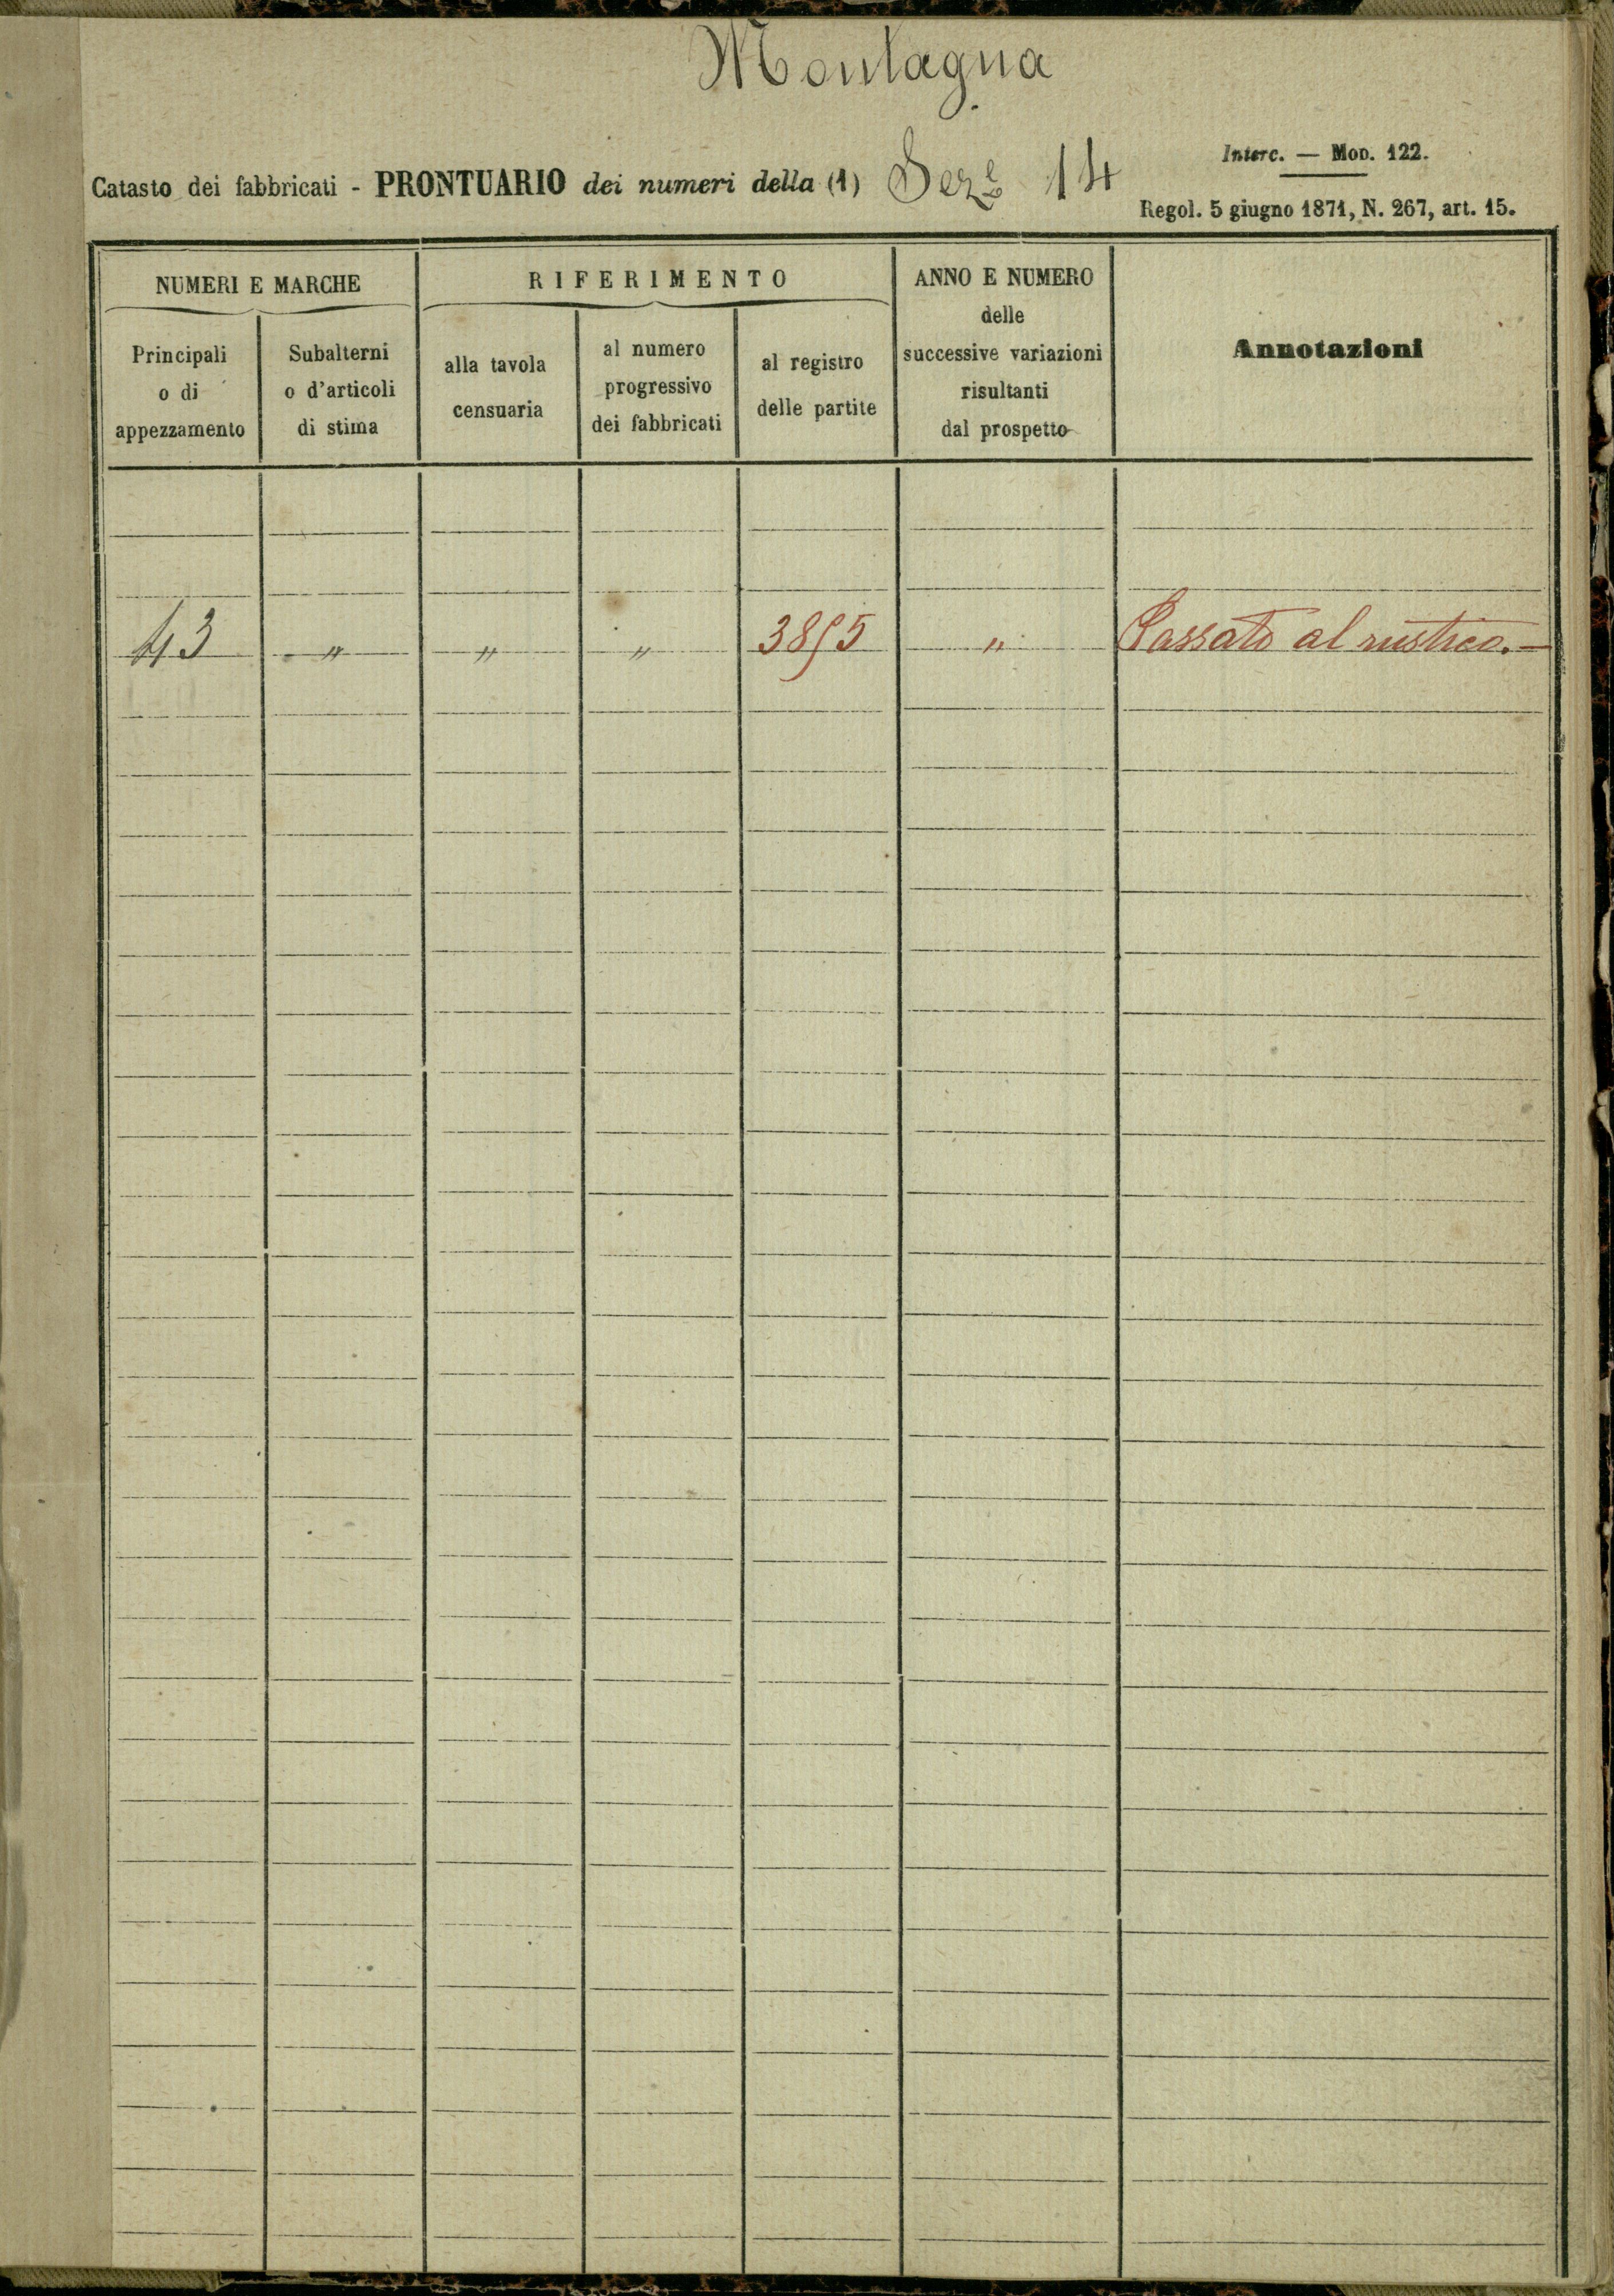 Montagna
Interc. — Mod. 122.
Catasto dei fabbricati - PRONTUARIO dei numeri della (1) Seze 14
Regol. 5 giugno 1871, N. 267, art. 15.
NUMERI E MARCHE
Principali
o di
appezzamento
Subalterni
o d'articoli
di stima
RIFERIMENTO
alla tavola
censuaria
al numero
progressivo
dei fabbricati
al registro
delle partite
ANNO E NUMERO
delle
successive variazioni
risultanti
dal prospetto
Annotazioni
43 " " " 3895 " Passato al rustico.—